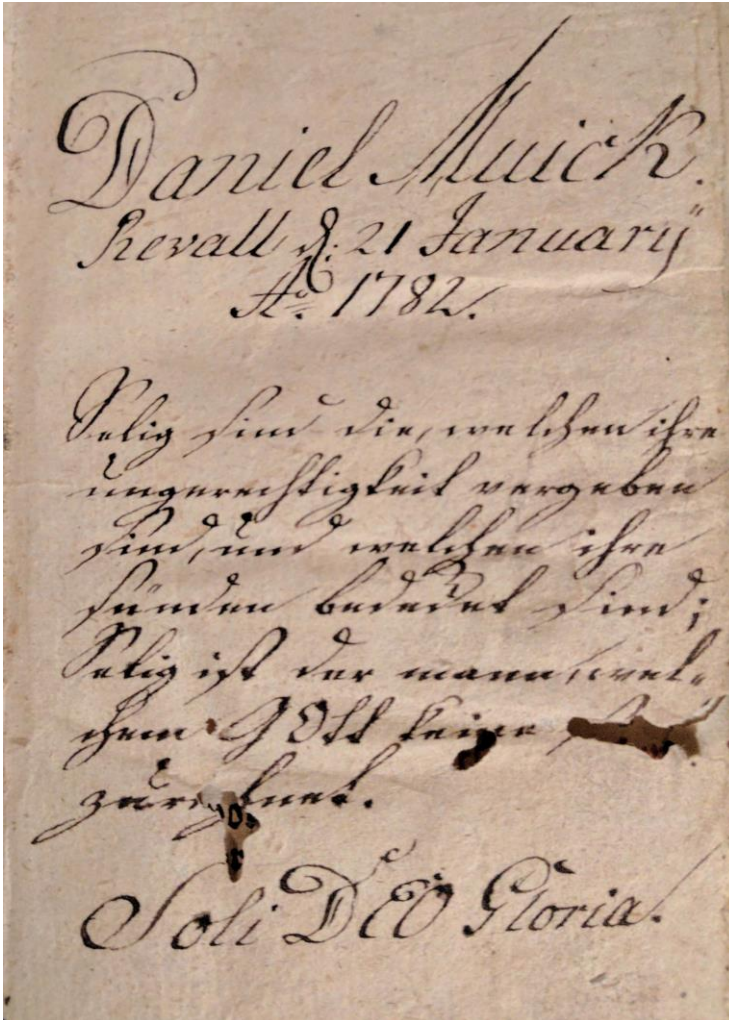 Daniel Muick.
Revall d: 21 January
Aº. 1782.
Selig sind die, welchen ihre
ungerechtigkeit vergeben
sind, und welchen ihre
sünden bedecket sind;
Selig ist der mann, wel-
chem GOtt keine
zurechnet.
Soli DEO Gloria.